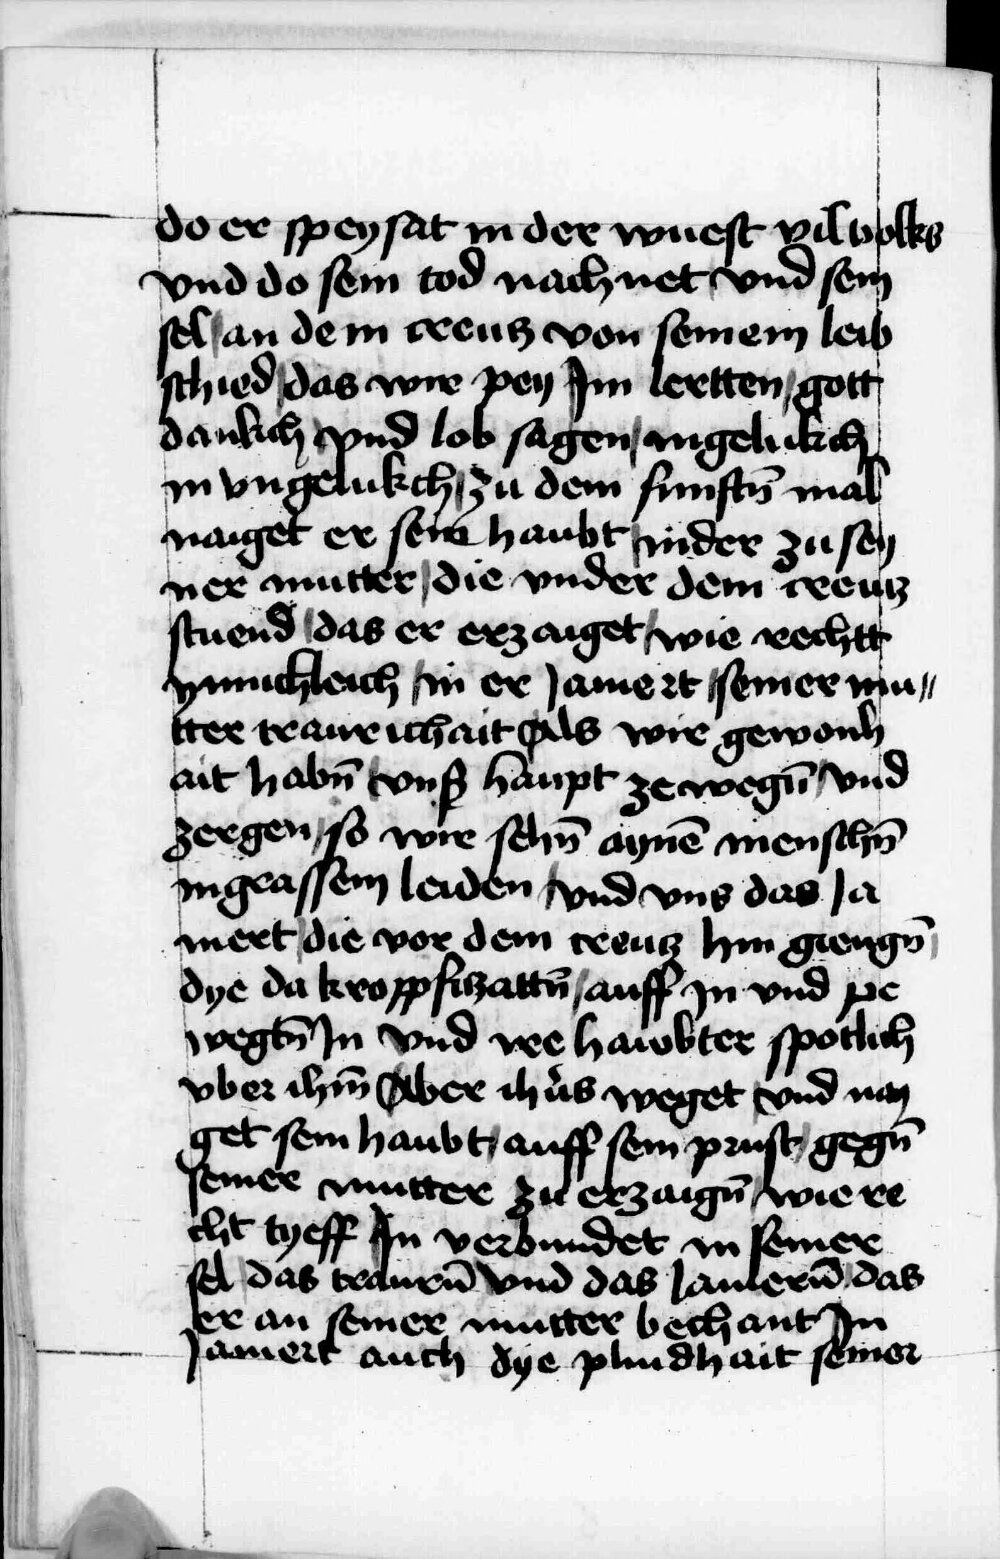 do er speysat in der wuest vil volks
vnd do sein tod nachnet vnd sein
sel / an dem creutz von seinem leib
schied / das wir pey Jm lertten / gott
dankch / vnd lob sagen / in gelukch
in vngelukch / zu dem funftn̄ mal
naiget er sein haubt / nider zu sey
ner mutter / die vnder dem creutz
stuend / das er erzaiget / wie rechtt
ynnichleich / in er Jamert / seiner mu〃
tter traurichait Als wir gewonh
ait habn̄ / vnß haupt ze wegn̄ / vnd
zergen / so wir sehn̄ aynē menschn̄
in grassem leiden / vnd vns das Ja
mert / die vor dem creutz hin giengn̄ /
dye da kroppfitzattn̄ / auff Jn vnd pe
wegtn̄ Jn vnd ire hawbter spotlich
vber ihm̄ Aber ihūs weget / vnd nay
get sein haubt / auff sein prust / gegn̄
seiner mutter zu erzaign̄ / wie re
cht tyeff Jn verbundet in seiner
sel / das traurn̄ vnd das Jamern̄ / das
er an seiner mutter bechant Jn
Jamert auch dye plindhait seiner